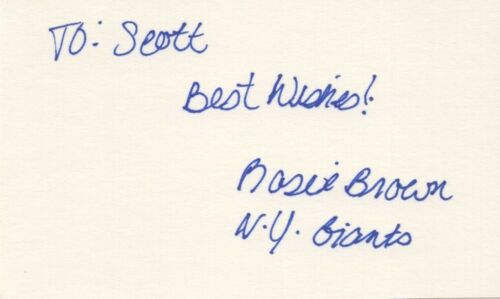 To: Scott
Best Wishes!
Rosie Brown
N.Y. Giants